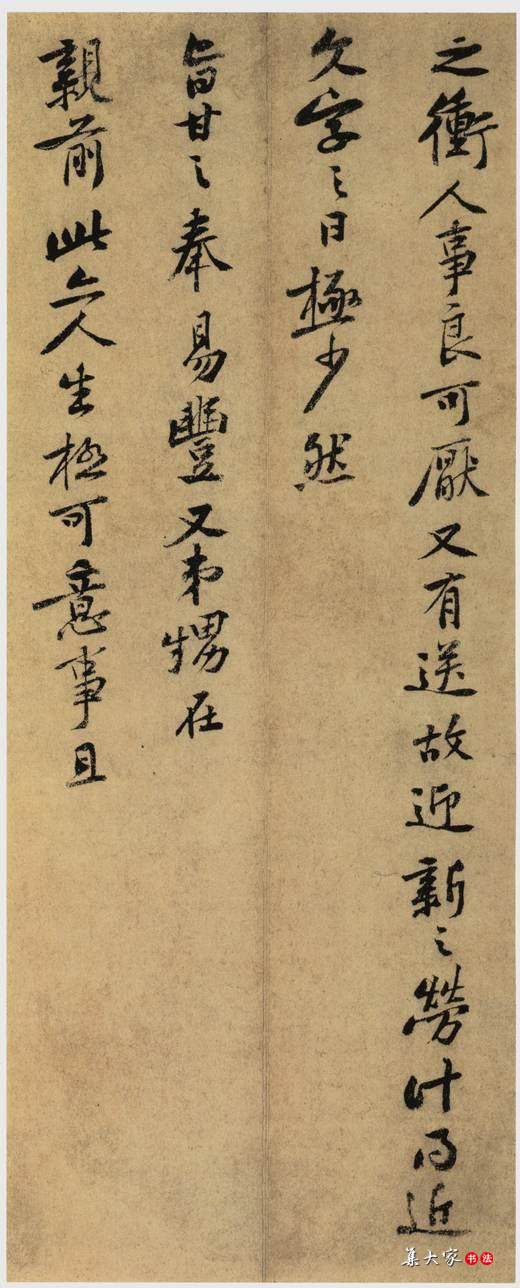 之衝人事良可厭又有送故迎新之勞計得近
文字之日極少然
旨甘之奉易豐又弟甥在
親前此亦人生極可意事且
集大家书法